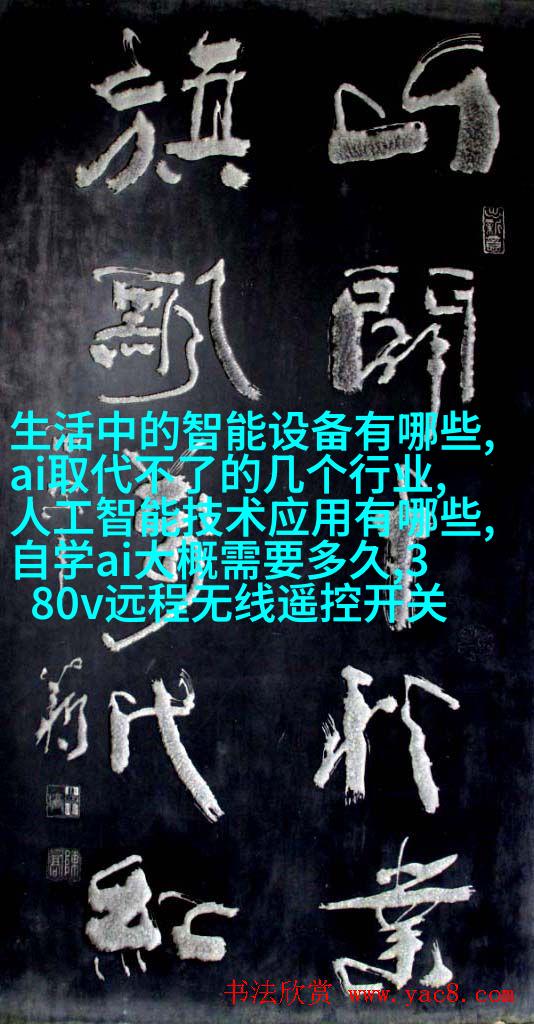 開業
旗飘代紅
生活中的智能设备有哪些,
ai取代不了的几个行业,
人工智能技术应用有哪些,
自学ai大概需要多久,3
80v远程无线遥控开关
书法欣赏 www.yac8.com